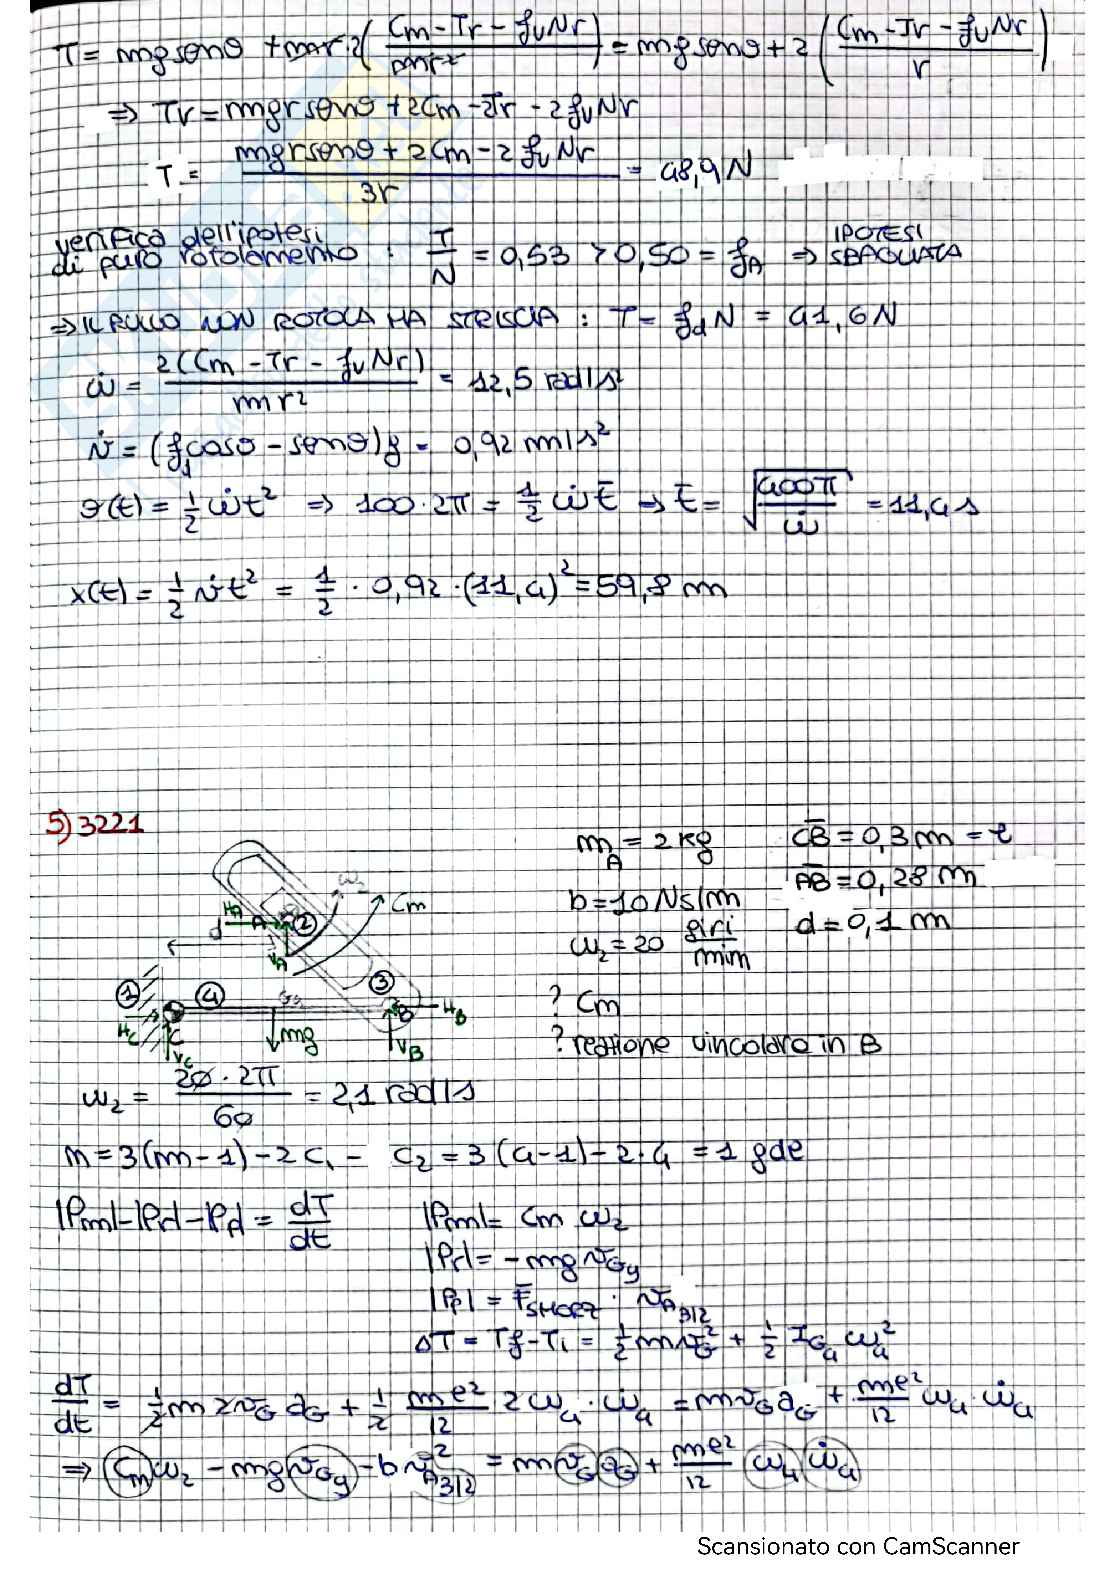 T = mg senθ + mr·2(Cm - Tr - fvNr / mr²) = mg senθ + 2(Cm - Tr - fvNr / r)
⇒ Tr = mgr senθ + 2Cm - 2Tr - 2fvNr
T = mgr senθ + 2Cm - 2fvNr / 3r = 48,9 N
verifica dell'ipotesi
di puro rotolamento : T/N = 0,53 > 0,50 = fA ⇒ IPOTESI SBAGLIATA
⇒ IL RULLO NON ROTOLA MA STRISCIA : T = fdN = 41,6 N
ω̇ = 2(Cm - Tr - fvNr) / mr² = 12,5 rad/s²
v̇ = (fd cosθ - senθ)g = 0,92 m/s²
θ(t) = 1/2 ω̇t² ⇒ 100·2π = 1/2 ω̇t̄ → t̄ = √(400π / ω̇) = 11,4 s
x(t) = 1/2 v̇t² = 1/2 · 0,92 · (11,4)² = 59,8 m
5) 3221
mA = 2 kg
C̄B̄ = 0,3 m = ℓ
ĀB̄ = 0,28 m
b = 10 Ns/m
d = 0,1 m
ω2 = 20 giri/min
ω2
Cm
HA
A
2
d
VA
3
1
4
G4
B
HB
HC
C
VC
mg
VB
? Cm
? reazione vincolare in B
ω2 = 20·2π / 60 = 2,1 rad/s
n = 3(m-1) - 2C1 - C2 = 3(4-1) - 2·4 = 1 gdl
|Pm| - |Pr| - |Pd = dT/dt
|Pm| = Cm ω2
|Pr| = -mg vGy
|Pp| = F̄SMORZ · v̄A3/2
ΔT = Tf - Ti = 1/2 m vG² + 1/2 IG4 ω4²
dT/dt = 1/2 m 2vG aG + 1/2 mℓ²/12 2ω4·ω̇4 = m vG aG + mℓ²/12 ω4·ω̇4
⇒ Cm ω2 - mg vGy - b v²A3/2 = m vG aG + mℓ²/12 ω4 ω̇4
Scansionato con CamScanner